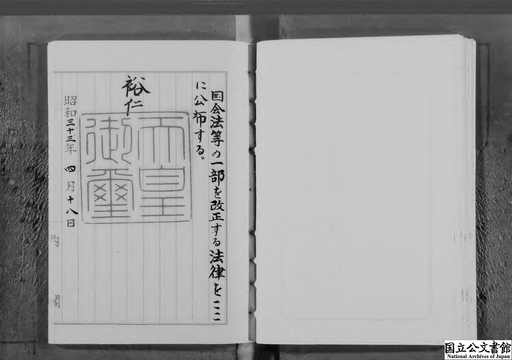 国会法等の一部を改正する法律をここ
に公布する。
裕仁
天皇
御璽
昭和三十三年四月十八日
内閣
国立公文書館
National Archives of Japan